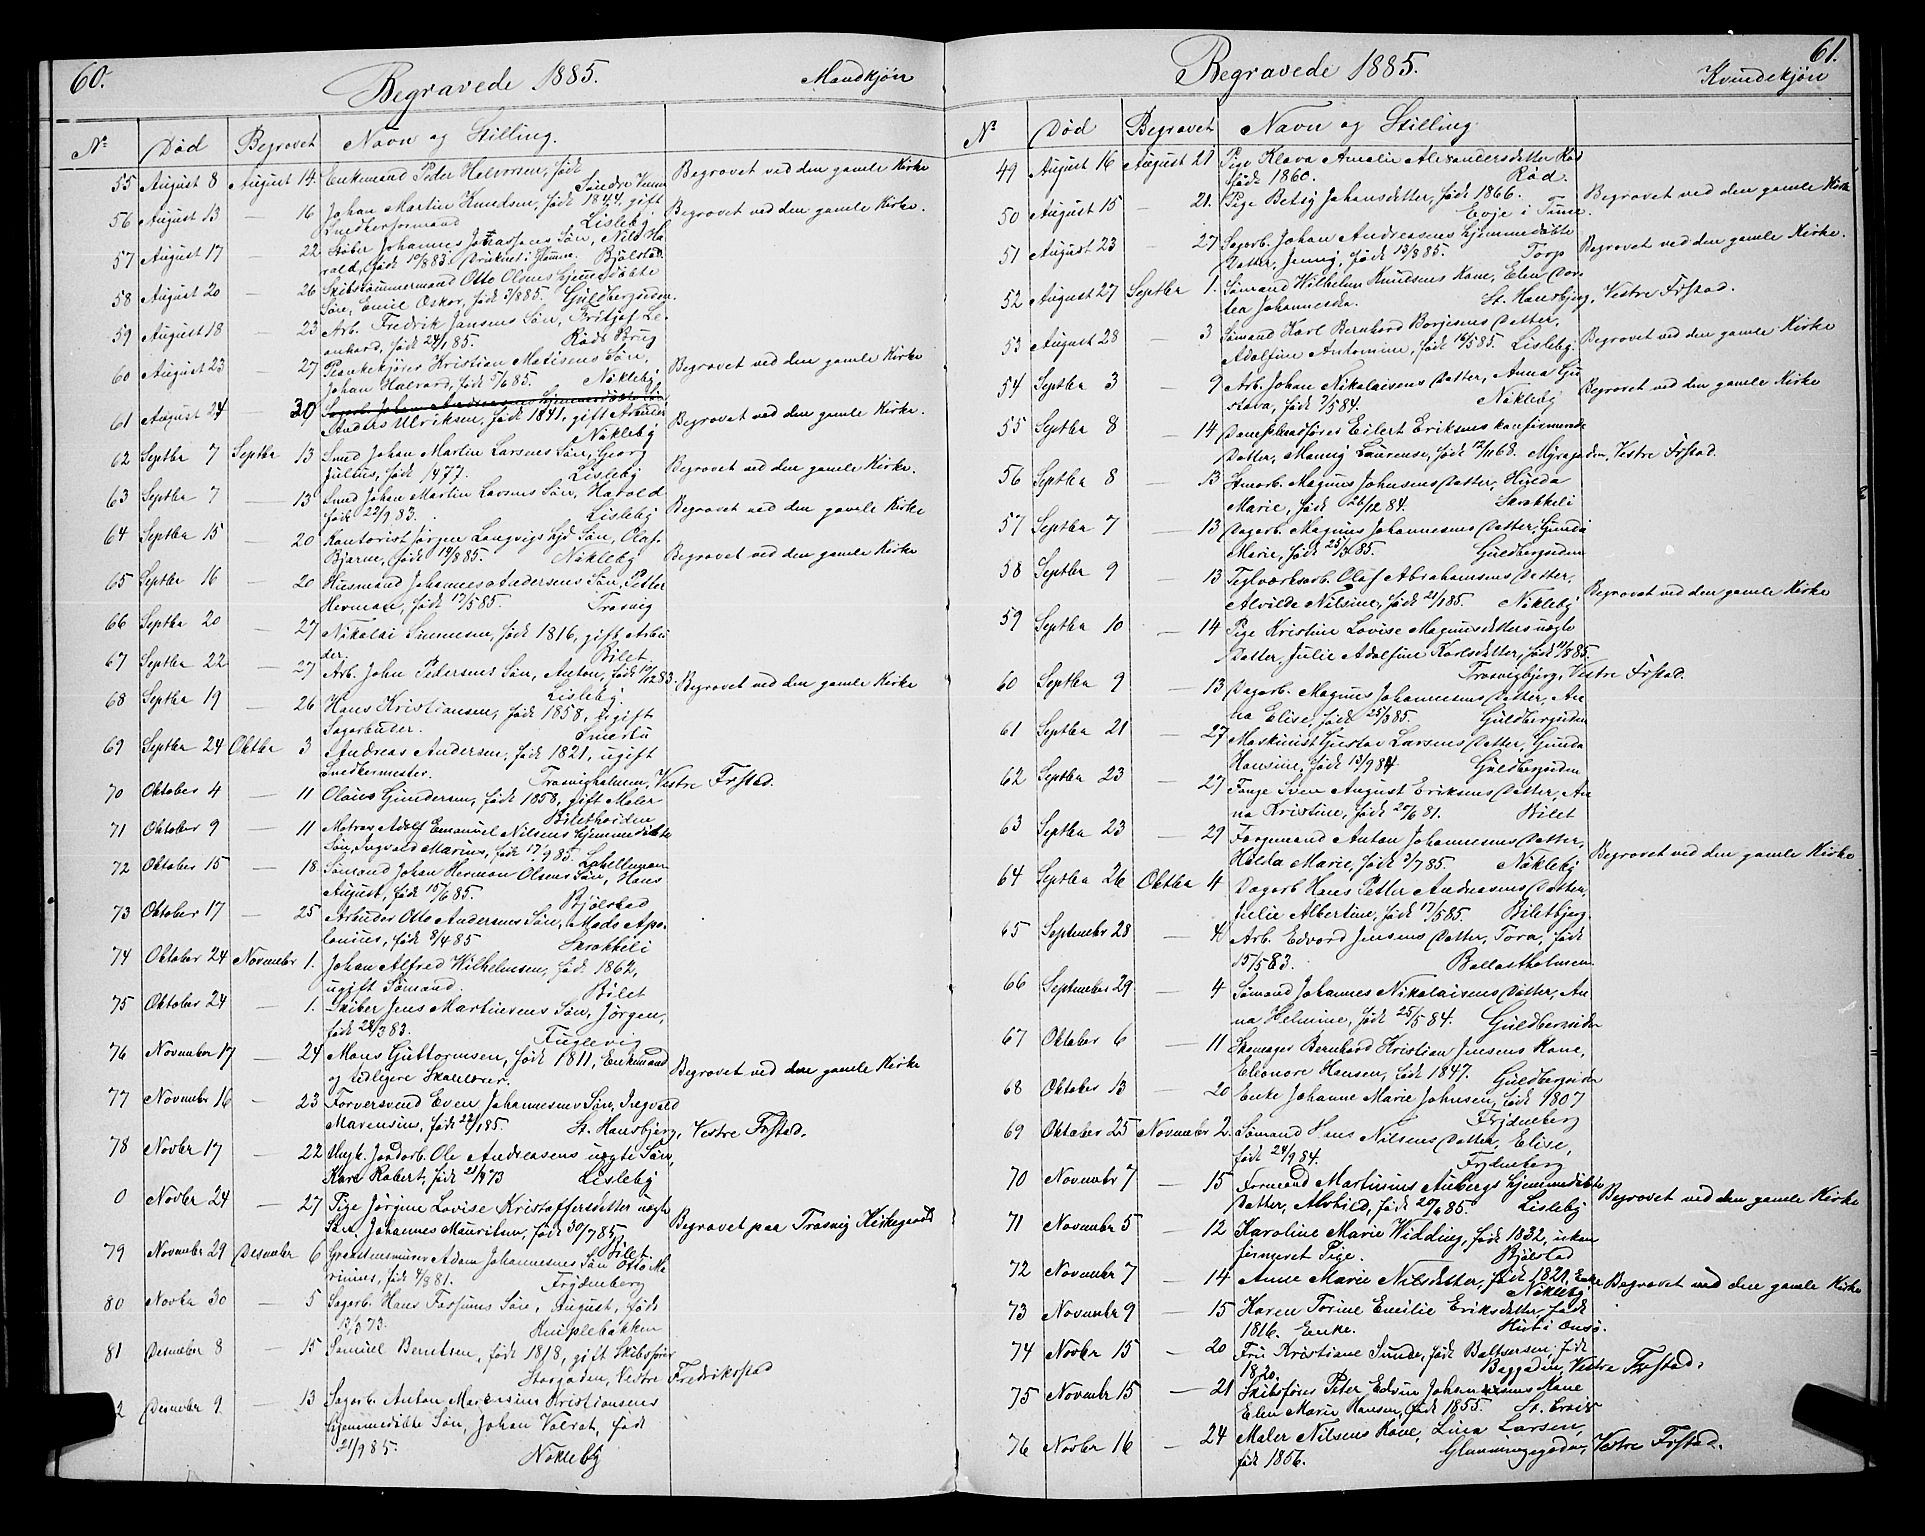 60.
Begravede 1885.
Mandkjøn
No
Død
Begravet
Navn og Stilling.
55 August 8 August 14. Enkemand Peder Halvorsen, født
Søndre Begravet ved den gamle Kirke
56 August 13 — 16 Johan Martin Knudsen, født 1844, gift
Snedkerformand Lisleby Begravet ved den gamle Kirke.
57 August 17 — 22 Skiber Johannes Søn, Nils Ha
rald, født 10/8 83. Druknet i Bjølstad
58 August 20 — 26 Skibstømmermand Otto Olsens hjemmedøbte
Søn, Emil Oskar, født 3/8 85. Guldbergsiden.
59 August 18 — 23 Arb. Fredrik Jansens Søn, Fritjof Le
onhard, født 24/1 85. Røds Brug
60 August 23 — 27 Plankekjører Kristian Matisens Søn,
Johan Halvard, født 5/6 85. Nøkleby Begravet ved den gamle Kirke
Sagarb. Johan Andreasens hjemmedøbte
61 August 24 — 30 Anders Ulriksen, født 1841, gift Arbeider
Nøkleby Begravet ved den gamle Kirke.
62 Septbr 7 Septbr 13 Smed Johan Martin Larsens Søn, Georg
Julius, født 1477. Lisleby Begravet ved den gamle Kirke.
63 Septbr 7 — 13 Smed Johan Martin Larsens Søn, Harald
født 22/9 83. Lisleby Begravet ved den gamle Kirke
64 Septbr 15 — 20 Kontorist Jørgen Langvigs hjd Søn, Olaf
Bjarne, født 19/8 85. Nøkleby Begravet ved den gamle Kirke
65 Septbr 16 — 20 Husmand Johannes Andersens Søn, Petter
Herman, født 17/5 85. Trosvig
66 Septbr 20 — 27 Nikolai Simensen, født 1816, gift Arbei
der. Bilet
67 Septbr 22 — 27 Arb. John Pedersens Søn, Anton, født 19/12 83.
Lisleby. Begravet ved den gamle Kirke
68 Septbr 19 — 26 Hans Kristiansen, født 1858, ugift
Sagarbeider. Smertu
69 Septbr 24 Oktbr 3 Andreas Andersen, født 1821, ugift
Snedkermester. Trosvigholmen, Vestre Frstad.
70 Oktober 4 — 11 Olaus Gundersen, født 1858, gift Maler
Biletholen
71 Oktober 9 — 11 Matros Adolf Emanuel Nilsens hjemmedøbte
Søn, Ingvald Marius, født 17/9 85.
72 Oktober 15 — 18 Sømand Johan Herman Olsens Søn, Hans
August, født 15/6 85. Bjølstad
73 Oktober 17 — 25 Arbeider Otto Andersens Søn, Mads Apo
lonius, født 8/4 85 Skrakkeli
74 Oktober 24 November 1. Johan Alfred Wilhelmsen, født 1862,
ugift Sømand. Bilet
75 Oktober 24 — 1. Skiber Jens Martinsens Søn, Jørgen,
født 28/3 83. Fuglevig
76 November 17 — 24 Mons Guttormsen, født 1811, Enkemand
og tidligere Skolelærer. Begravet ved den gamle Kirke
77 Novembr 16 — 23 Farversvend Even Johannesens Søn, Ingvald
Marensius, født 22/1 85. St. Hansbjerg, Vestre Frstad.
78 Novbr 17 — 22 Ungk. Jordarb. Ole Andreasens uægte Søn,
Karl Robert, født 21/9 73 Lisleby
0 Novbr 24 — 27 Pige Jørgine Lovise Kristoffersdetters uægte
Søn, Johannes Mauritius, født 30/7 85, Begravet paa Trosvig Kirkegaard
Bilet.
79 November 29 Desember 6 Grundstensmurer Adam Johannesens Søn Otto Ma
rinius, født 4/9 81. Frydenberg
80 Novbr 30 — 5 Sagarb. Hans Forsuns Søn, August, født
13/3 73. Kniplebakken
81 Desember 8 — 15 Samuel Berntsen, født 1818, gift Skibsfører
Storgaden, Vestre Fredrikstad
2 Desembr 9 — 13 Sagarb. Anton Marensius Kristiansens
hjemmedøbte Søn, Johan Valrat, født
21/9 85. Nøkleby
61.
Begravede 1885.
Kvindekjøn
No
Død
Begravet
Navn og Stilling
49 August 16 August 21 Pige Klara Amalie Alexandersdetter Rød
født 1860. Rød.
50 August 15 — 21. Pige Betsy Johansdetter, født 1866.
Evje i Tune. Begravet ved den gamle Kirke
51 August 23 — 27 Sagarb. Johan Andreasens hjemmedøbte
Datter, Jenny, født 13/8 85. Torp Begravet ved den gamle Kirke.
52 August 27 Septbr 1. Sømand Wilhelm Knudsens Kone, Elen Dor
tea Johanneska. St. Hansbjerg, Vestre Frstad.
53 August 28 — 3 Sømand Karl Bernhard Borjesens Datter,
Adolfine Antonine, født 16/5 85. Lisleby. Begravet ved den gamle Kirke
54 Septbr 3 — 9 Arb. Johan Nikolaisens Datter, Anna Gu
stava, født 7/5 84. Nøkleby Begravet ved den gamle Kirke
55 Septbr 8 — 14 Dampskibsfører Eilert Eriksens konfirmerede
Datter, Manny Laurense, født 12/11 68. Myragaden, Vestre Frstad.
56 Septbr 8 — 13 Stenarb. Magnus Johnsens Datter, Hilda
Marie, født 26/12 84. Skrakkeli
57 Septbr 7 — 13 Dagarb. Magnus Johannesens Datter, Gunda
Marie, født 25/3 85. Guldbergsiden
58 Septbr 9 13 Teglværksarb. Olaf Abrahamsens Datter,
Alvilde Nilsine, født 21/1 85. Nøkleby Begravet ved den gamle Kirke
59 Septbr 10 — 14 Pige Kristine Lovise Magnusdetters uægte
Datter, Julie Adolfine Karlsdetter, født 11/8 85.
Trosvigbjerg, Vestre Frstad.
60 Septbr 9 — 13 Dagarb. Magnus Johannesens Datter, An
na Elise, født 25/3 85. Guldbergsiden
61 Septbr 21 — 27 Maskinist Gustav Larsens Datter, Gunda
Hansine, født 13/9 84 Guldbergsiden
62 Septbr 23 — 27 Tange Sven August Eriksens Datter, An
na Kristine, født 20/6 81. Bilet
63 Septbr 23 — 29 Færgemand Anton Johannesens Datter,
Hilda Marie, født 3/7 85. Nøkleby Begravet ved den gamle Kirke
64 Septbr 26 Oktbr 4 Dagarb Hans Petter Andreasens Datter,
Julie Albertine, født 17/5 85. Biletbjerg.
65 September 28 — 4 Arb. Edvard Jensens Datter, Tora, født
15/5 83. Ballastholmen.
66 September 29 — 4 Sømand Johannes Nikolaisens Datter, An
na Helmine, født 25/5 84. Guldbergsiden
67 Oktober 6 — 11 Skomager Bernhard Kristian Jensens Kone,
Eleonore Hansen, født 1847. Guldbergsiden
68 Oktober 13 — 20 Enke Johanne Marie Johnsen, født 1807
Frydenberg
69 Oktober 25 November 2. Sømand Hans Nilsens Datter, Elise,
født 24/9 84. Frydenberg
70 Novembr 7 — 15 Formand Martinius Aubergs hjemmedøbte
Datter, Alvhild, født 20/6 85. Lisleby Begravet ved den gamle Kirke
71 November 5 — 12 Karoline Marie Widding, født 1832, ukon
firmeret Pige. Bjølstad
72 Novembr 7 — 14 Anne Marie Nilsdetter, født 1821, Enke
Nøkleby. Begravet ved den gamle Kirke
73 November 9 — 15 Karen Torine Emilie Eriksdetter, født
1816. Enke. Hut i Onsø.
74 Novbr 15 — 20 Fru Kristiane Sunde, født Baltsersen, født
1820. Baggaden, Vestre Frstad.
75 Novembr 15 — 21 Skibsfører Peter Edvin Johansens Kone
Elen Marie Hansen, født 1855. St. Croix
76 Novbr 16 — 24 Maler Nilsens Kone, Lina Larsen,
født 1856. Glemmingegaden, Vestre Frstad.